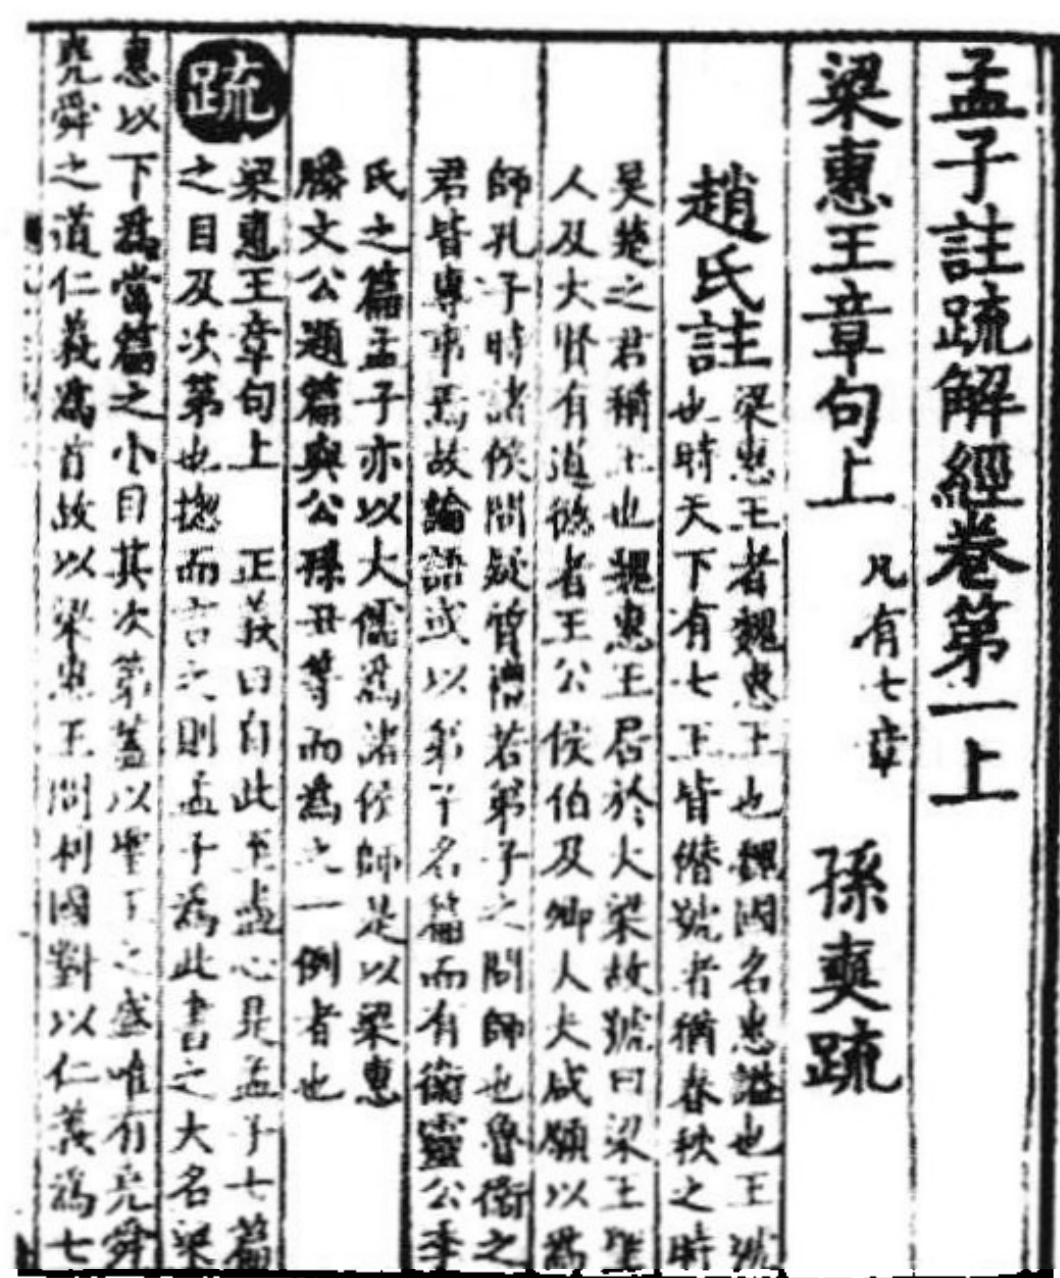 孟子註疏解經卷第一上
梁惠王章句上 凡有七章 孫奭疏
趙氏註
梁惠王者魏惠王也魏國名惠謚也王號
也時天下有七王皆僭號者猶春秋之時
吳楚之君稱王也魏惠王居於大梁故號曰梁王聖
人及大賢有道德者王公侯伯及卿大夫咸願以爲
師孔子時諸侯問疑質禮若弟子之問師也魯衛之
君皆專事焉故論語或以弟子名篇而有衛靈公季
氏之篇孟子亦以大儒爲諸侯師是以梁惠
滕文公題篇與公孫丑等而爲之一例者也
疏
梁惠王章句上 正義曰自此至盡心是孟子七篇
之目及次第也揔而言之則孟子爲此書之大名梁
惠以下爲當篇之小目其次第蓋以聖王之盛唯有堯舜
堯舜之道仁義爲首故以梁惠王問利國對以仁義爲七